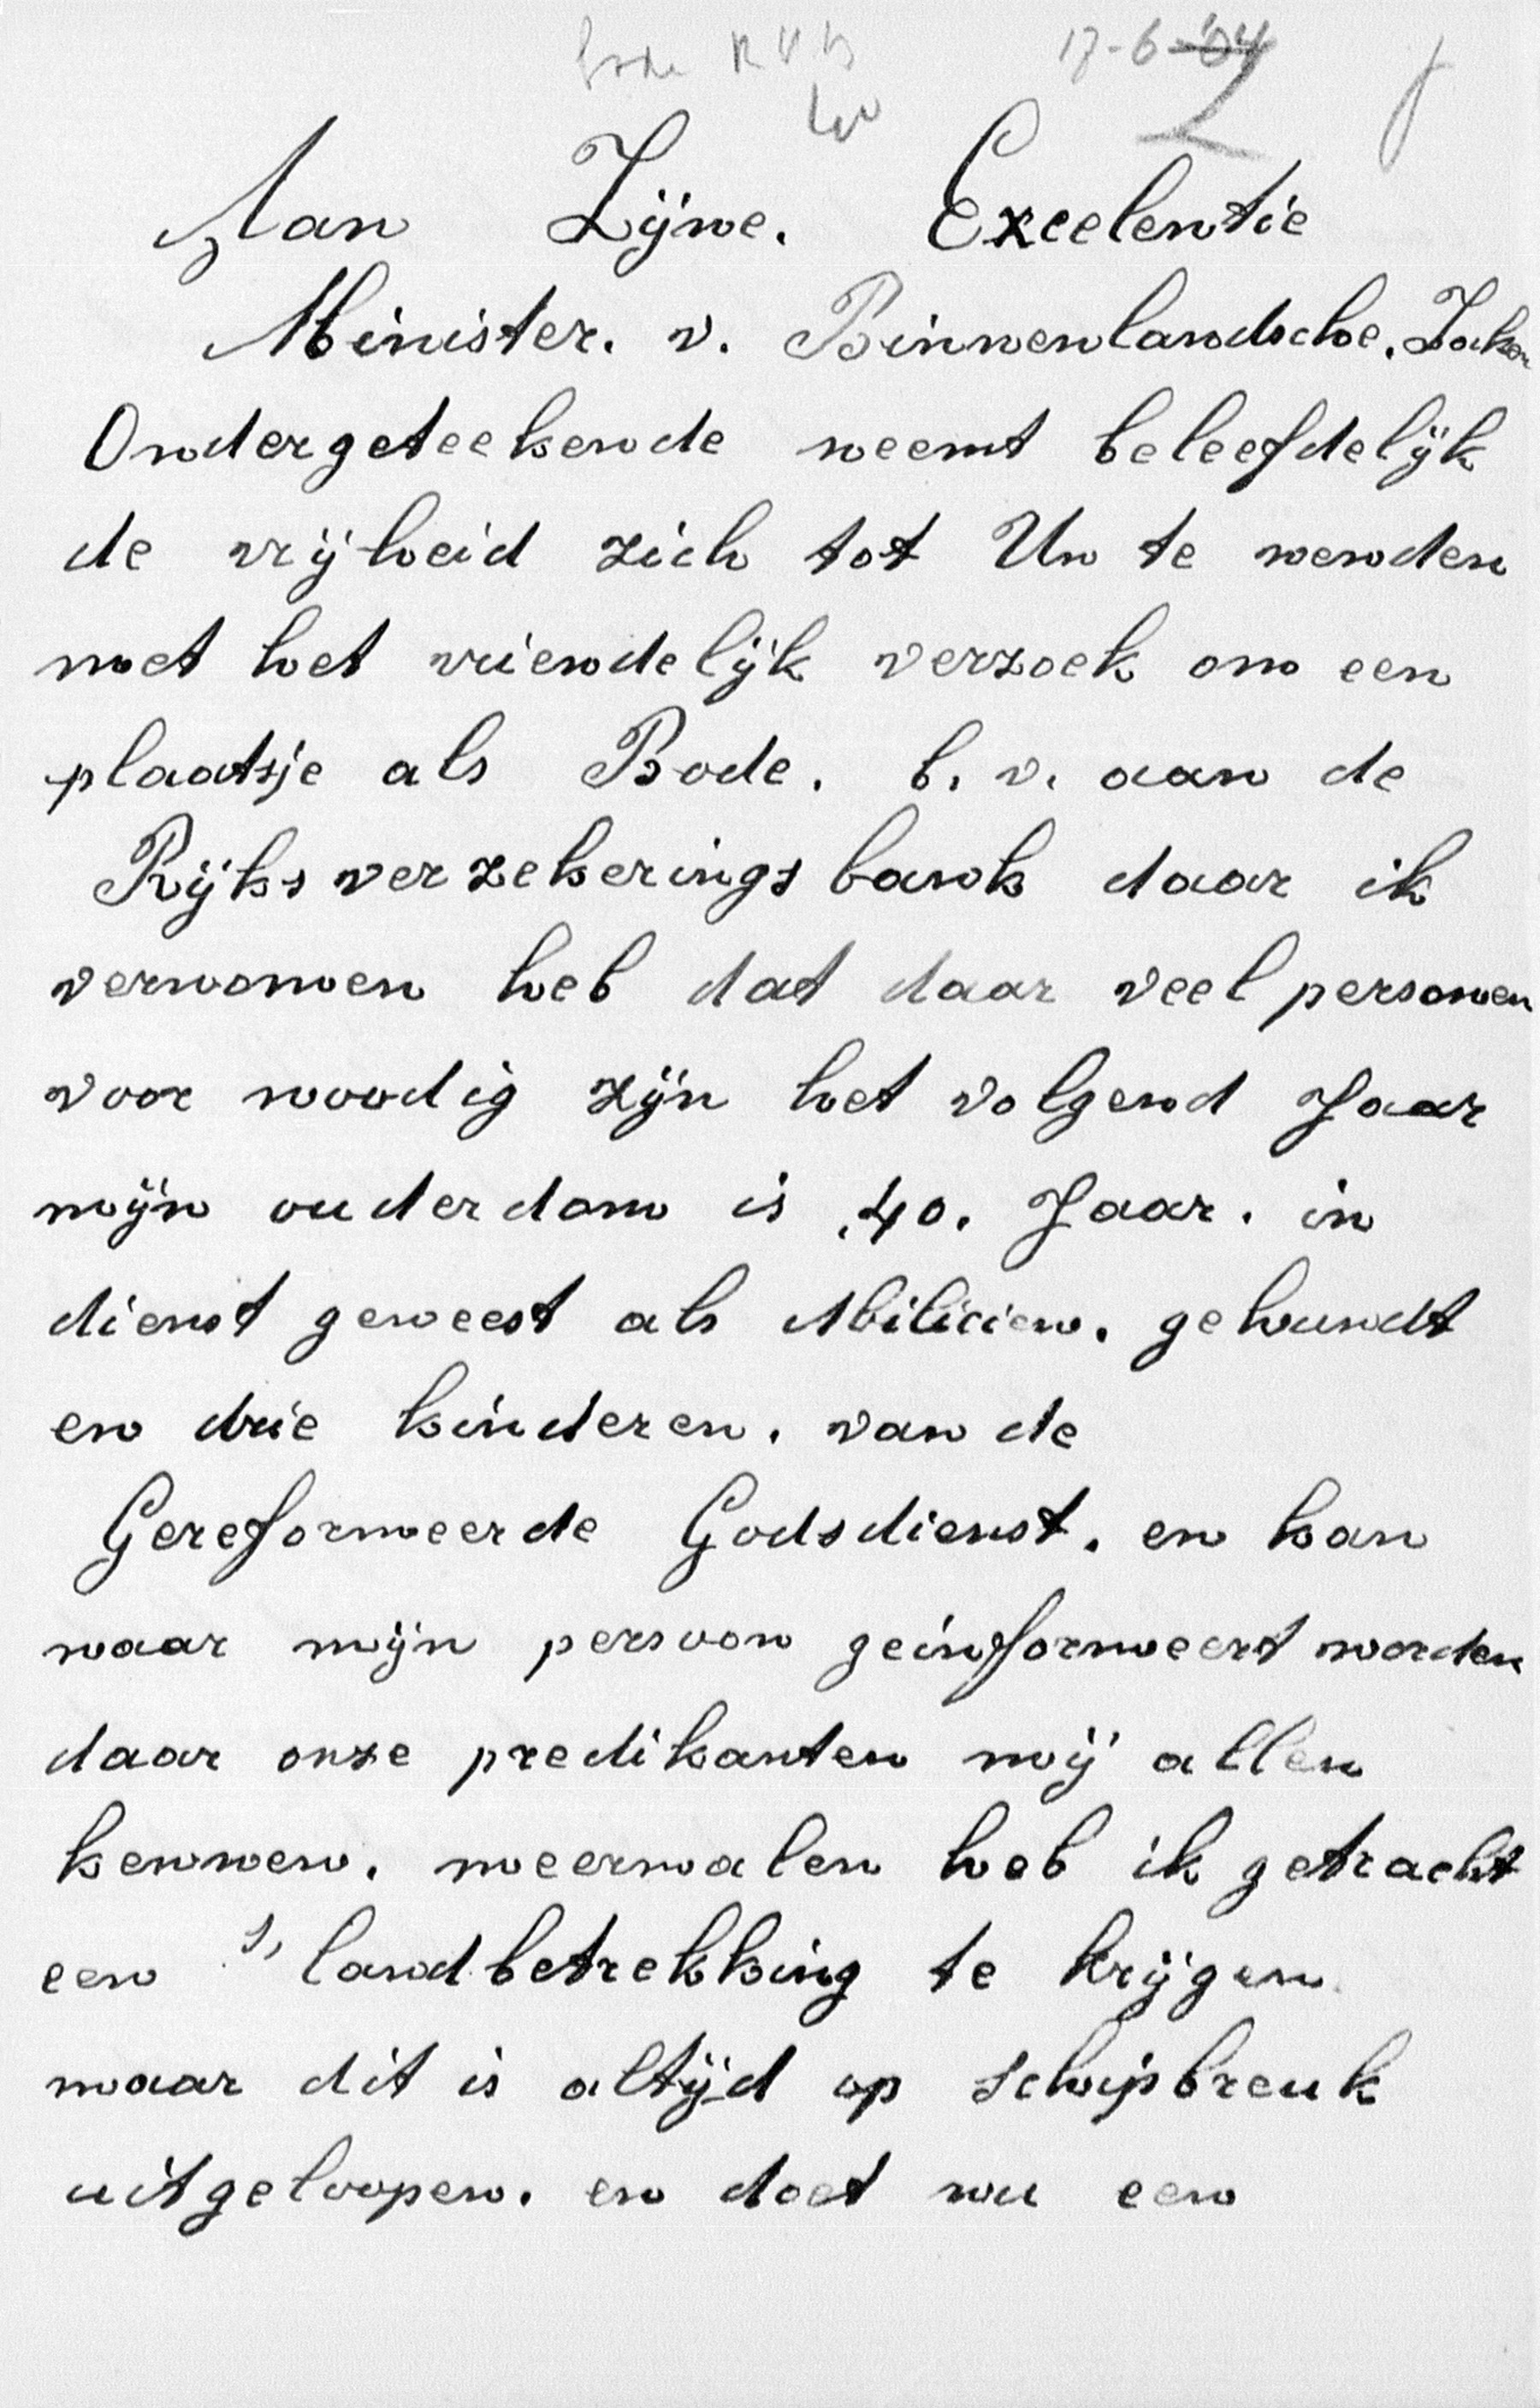 bode RVB 17-6-'04
Aan Zijne. Excelentie
Minister. v. Binnenlandsche. Zaken
Ondergeteekende neemt beleefdelijk
de vrijheid zich tot Uw te wenden
met het vriendelijk verzoek om een
plaatsje als Bode. b. v. aan de
Rijksverzekeringsbank daar ik
vernomen heb dat daar veel personen
voor noodig zijn het volgend Jaar
mijn ouderdom is .40. Jaar. in
dienst geweest als Milicien. gehuwdt
en drie kinderen. van de
Gereformeerde Godsdienst. en kan
naar mijn persoon geinformeert worden
daar onze predikanten mij allen
kennen. meermalen heb ik getracht
een s, landbetrekking te krijgen
maar dit is altijd op schipbreuk
uitgeloopen. en doet nu een